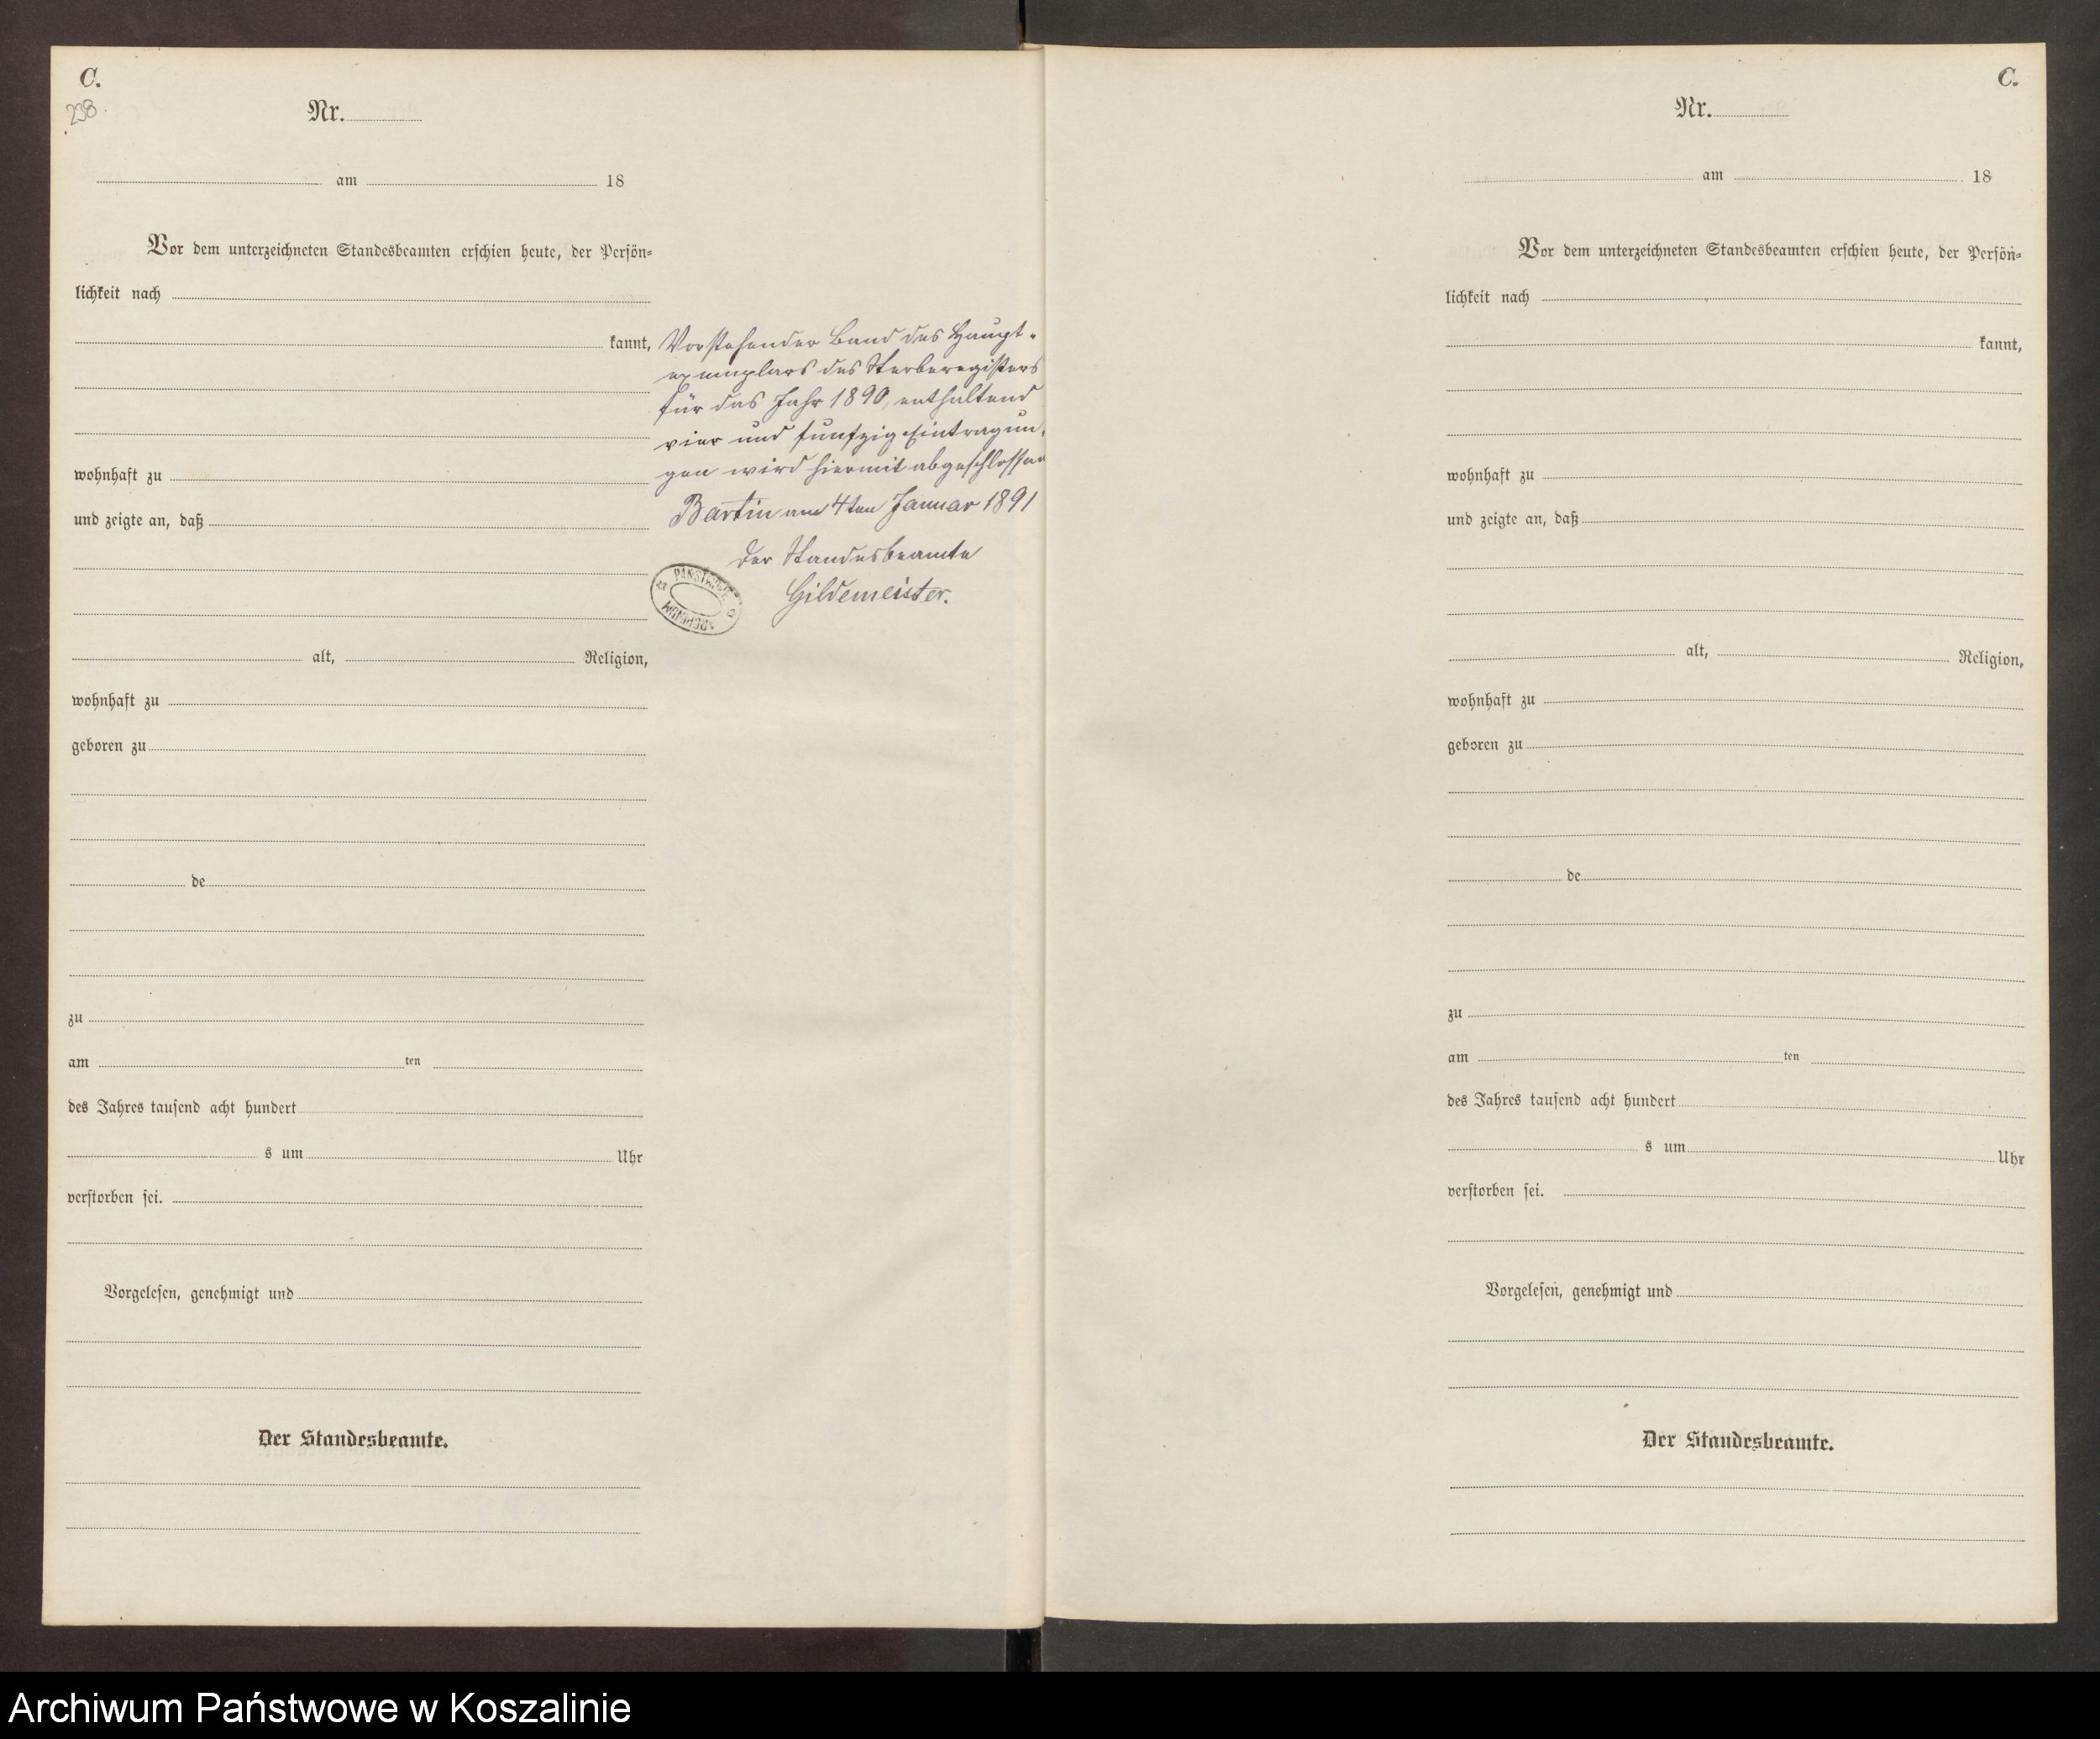 C.
238.
Nr.
am 18
Vor dem unterzeichneten Standesbeamten erschien heute, der Persön-
lichkeit nach
kannt,
wohnhaft zu
und zeigte an, daß
alt, Religion,
wohnhaft zu
geboren zu
de
zu
am ten
des Jahres tausend acht hundert
s um Uhr
verstorben sei.
Vorgelesen, genehmigt und
Der Standesbeamte.
Vorstehender Band des Haupt-
exemplars des Sterberegisters
für das Jahr 1890, enthaltend
vier und funfzig Eintragun-
gen wird hiermit abgeschlossen
Bartin am 4ten Januar 1891
Der Standesbeamte
Gildemeister.
ARCHIWUM
C.
Nr.
am 18
Vor dem unterzeichneten Standesbeamten erschien heute, der Persön-
lichkeit nach
kannt,
wohnhaft zu
und zeigte an, daß
alt, Religion,
wohnhaft zu
geboren zu
de
zu
am ten
des Jahres tausend acht hundert
s um Uhr
verstorben sei.
Vorgelesen, genehmigt und
Der Standesbeamte.
Archiwum Państwowe w Koszalinie